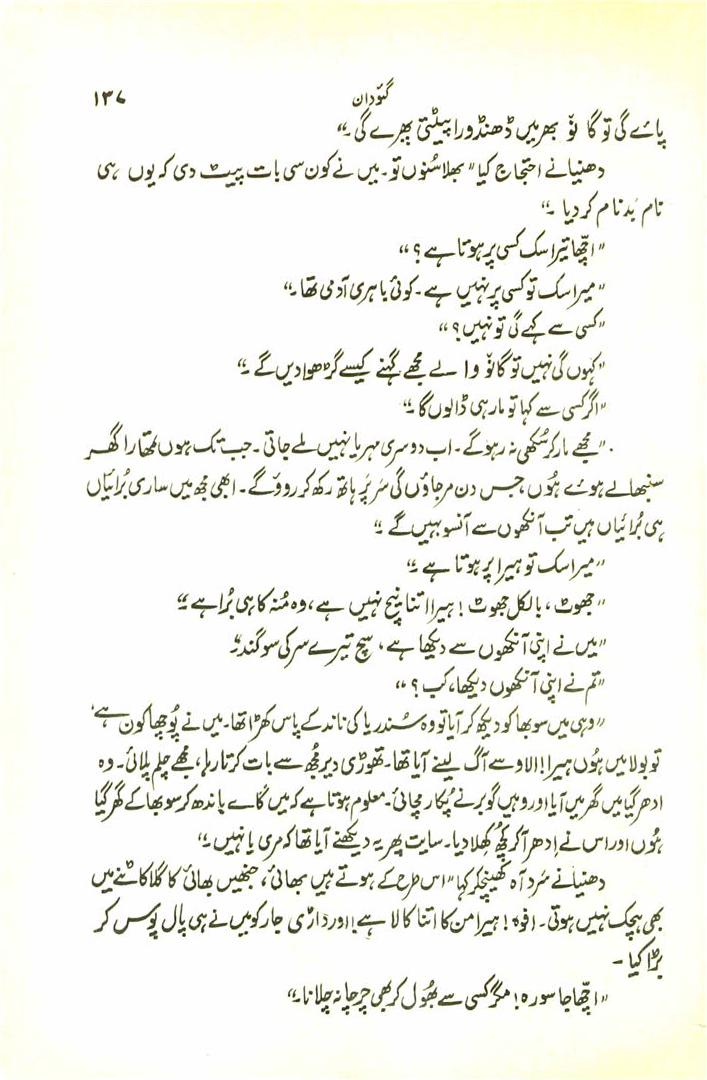 گئودان ۱۳۷
پائے گی تو گاؤں بھر میں ڈھنڈورا پیٹتی پھرے گی۔“
دھنیا نے احتجاج کیا ”بھلا سُنوں تو۔ میں نے کون سی بات پیٹ دی کہ یوں ہی
نام بدنام کر دیا۔“
”اچّھا تیرا سک کسی پر ہوتا ہے؟“
”میرا سک تو کسی پر نہیں ہے۔ کوئی باہری آدمی تھا۔“
”کسی سے کہے گی تو نہیں؟“
”کہوں گی نہیں تو گاؤں والے مجھے گہنے کیسے گڑھوا دیں گے۔“
”اگر کسی سے کہا تو مار ہی ڈالوں گا۔“
”مجھے مار کر سُکھی نہ رہو گے۔ اب دوسری مہریا نہیں ملے جاتی۔ جب تک ہوں تمھارا گھر
سنبھالے ہوئے ہوں، جس دن مر جاؤں گی سر پر ہاتھ رکھ کر روؤ گے۔ ابھی مجھ میں ساری بُرائیاں
ہی بُرائیاں ہیں تب آنکھوں سے آنسو بہیں گے۔“
”میرا سک تو ہیرا پر ہوتا ہے۔“
”جھوٹ، بالکل جھوٹ! ہیرا اتنا نیچ نہیں ہے، وہ مُنہ کا ہی بُرا ہے۔“
”میں نے اپنی آنکھوں سے دیکھا ہے، سچ تیرے سر کی سوگند۔“
”تم نے اپنی آنکھوں دیکھا، کب؟“
”وہی میں سوبھا کو دیکھ کر آیا تو وہ سُندریا کی ناند کے پاس کھڑا تھا۔ میں نے پُوچھا کون ہے،
تو بولا میں ہُوں ہیرا! الاؤ سے آگ لینے آیا تھا۔ تھوڑی دیر مُجھ سے بات کرتا رہا، مجھے چلم پلائی۔ وہ
ادھر گیا میں گھر میں آیا اور وہیں گوبر نے پُکار مچائی۔ معلوم ہوتا ہے کہ میں گائے باندھ کر سوبھا کے گھر گیا
ہُوں اور اس نے اِدھر آ کر کُچھ کھلا دیا۔ سایت پھر یہ دیکھنے آیا تھا کہ مری یا نہیں۔“
دھنیا نے سرد آہ کھینچکر کہا ”اس طرح کے ہوتے ہیں بھائی، جنھیں بھائی کا گلا کاٹنے میں
بھی ہچک نہیں ہوتی۔ افوہ! ہیرا من کا اتنا کالا ہے! اور داڑی جار کو میں نے ہی پال پوس کر
بڑا کیا۔
”اچّھا جا سو رہ! مگر کسی سے بھُول کر بھی چرچا نہ چلانا۔“